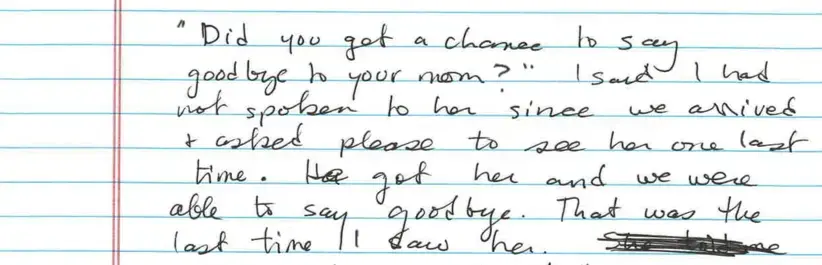 "Did you get a chance to say
goodbye to your mom?" I said I had
not spoken to her since we arrived
+ asked please to see her one last
time. He got her and we were
able to say goodbye. That was the
last time I saw her.